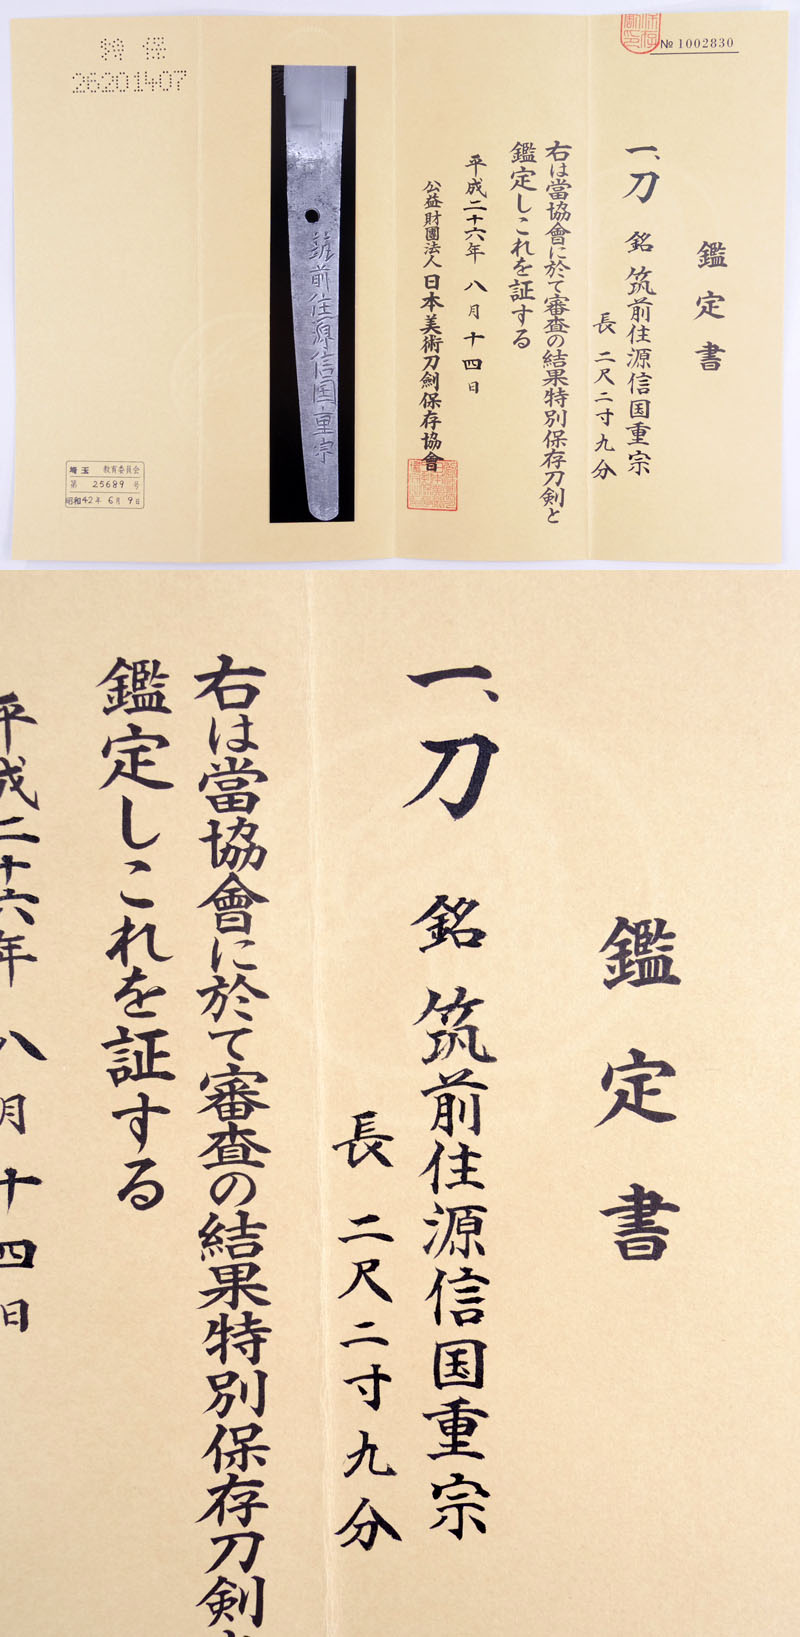 № 1002830
鑑定書
一、刀 銘 筑前住源信国重宗
長 二尺二寸九分
右は當協會に於て審査の結果特別保存刀剣と
鑑定しこれを証する
平成二十六年 八月 十四日
公益財團法人 日本美術刀劍保存協會
筑前住源信国重宗
特 保
26201407
埼玉 教育委員会
第 25689 号
昭和42年 6月 9日
鑑定書
一、刀 銘 筑前住源信国重宗
長 二尺二寸九分
右は當協會に於て審査の結果特別保存刀剣
鑑定しこれを証する
平成二十六年 八月十四日